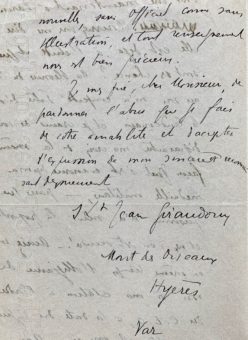 nouvelle, sans officiel comme sans
Illustration, et tout renseignement
nous est bien précieux.
Je vous prie, cher Monsieur, de
pardonner l'abus que je fais
de votre amabilité et d'accepter
l'expression de mon sincère et reconnais
sant dévouement
Jean Giraudoux
Mont des Oiseaux
Hyères
Var